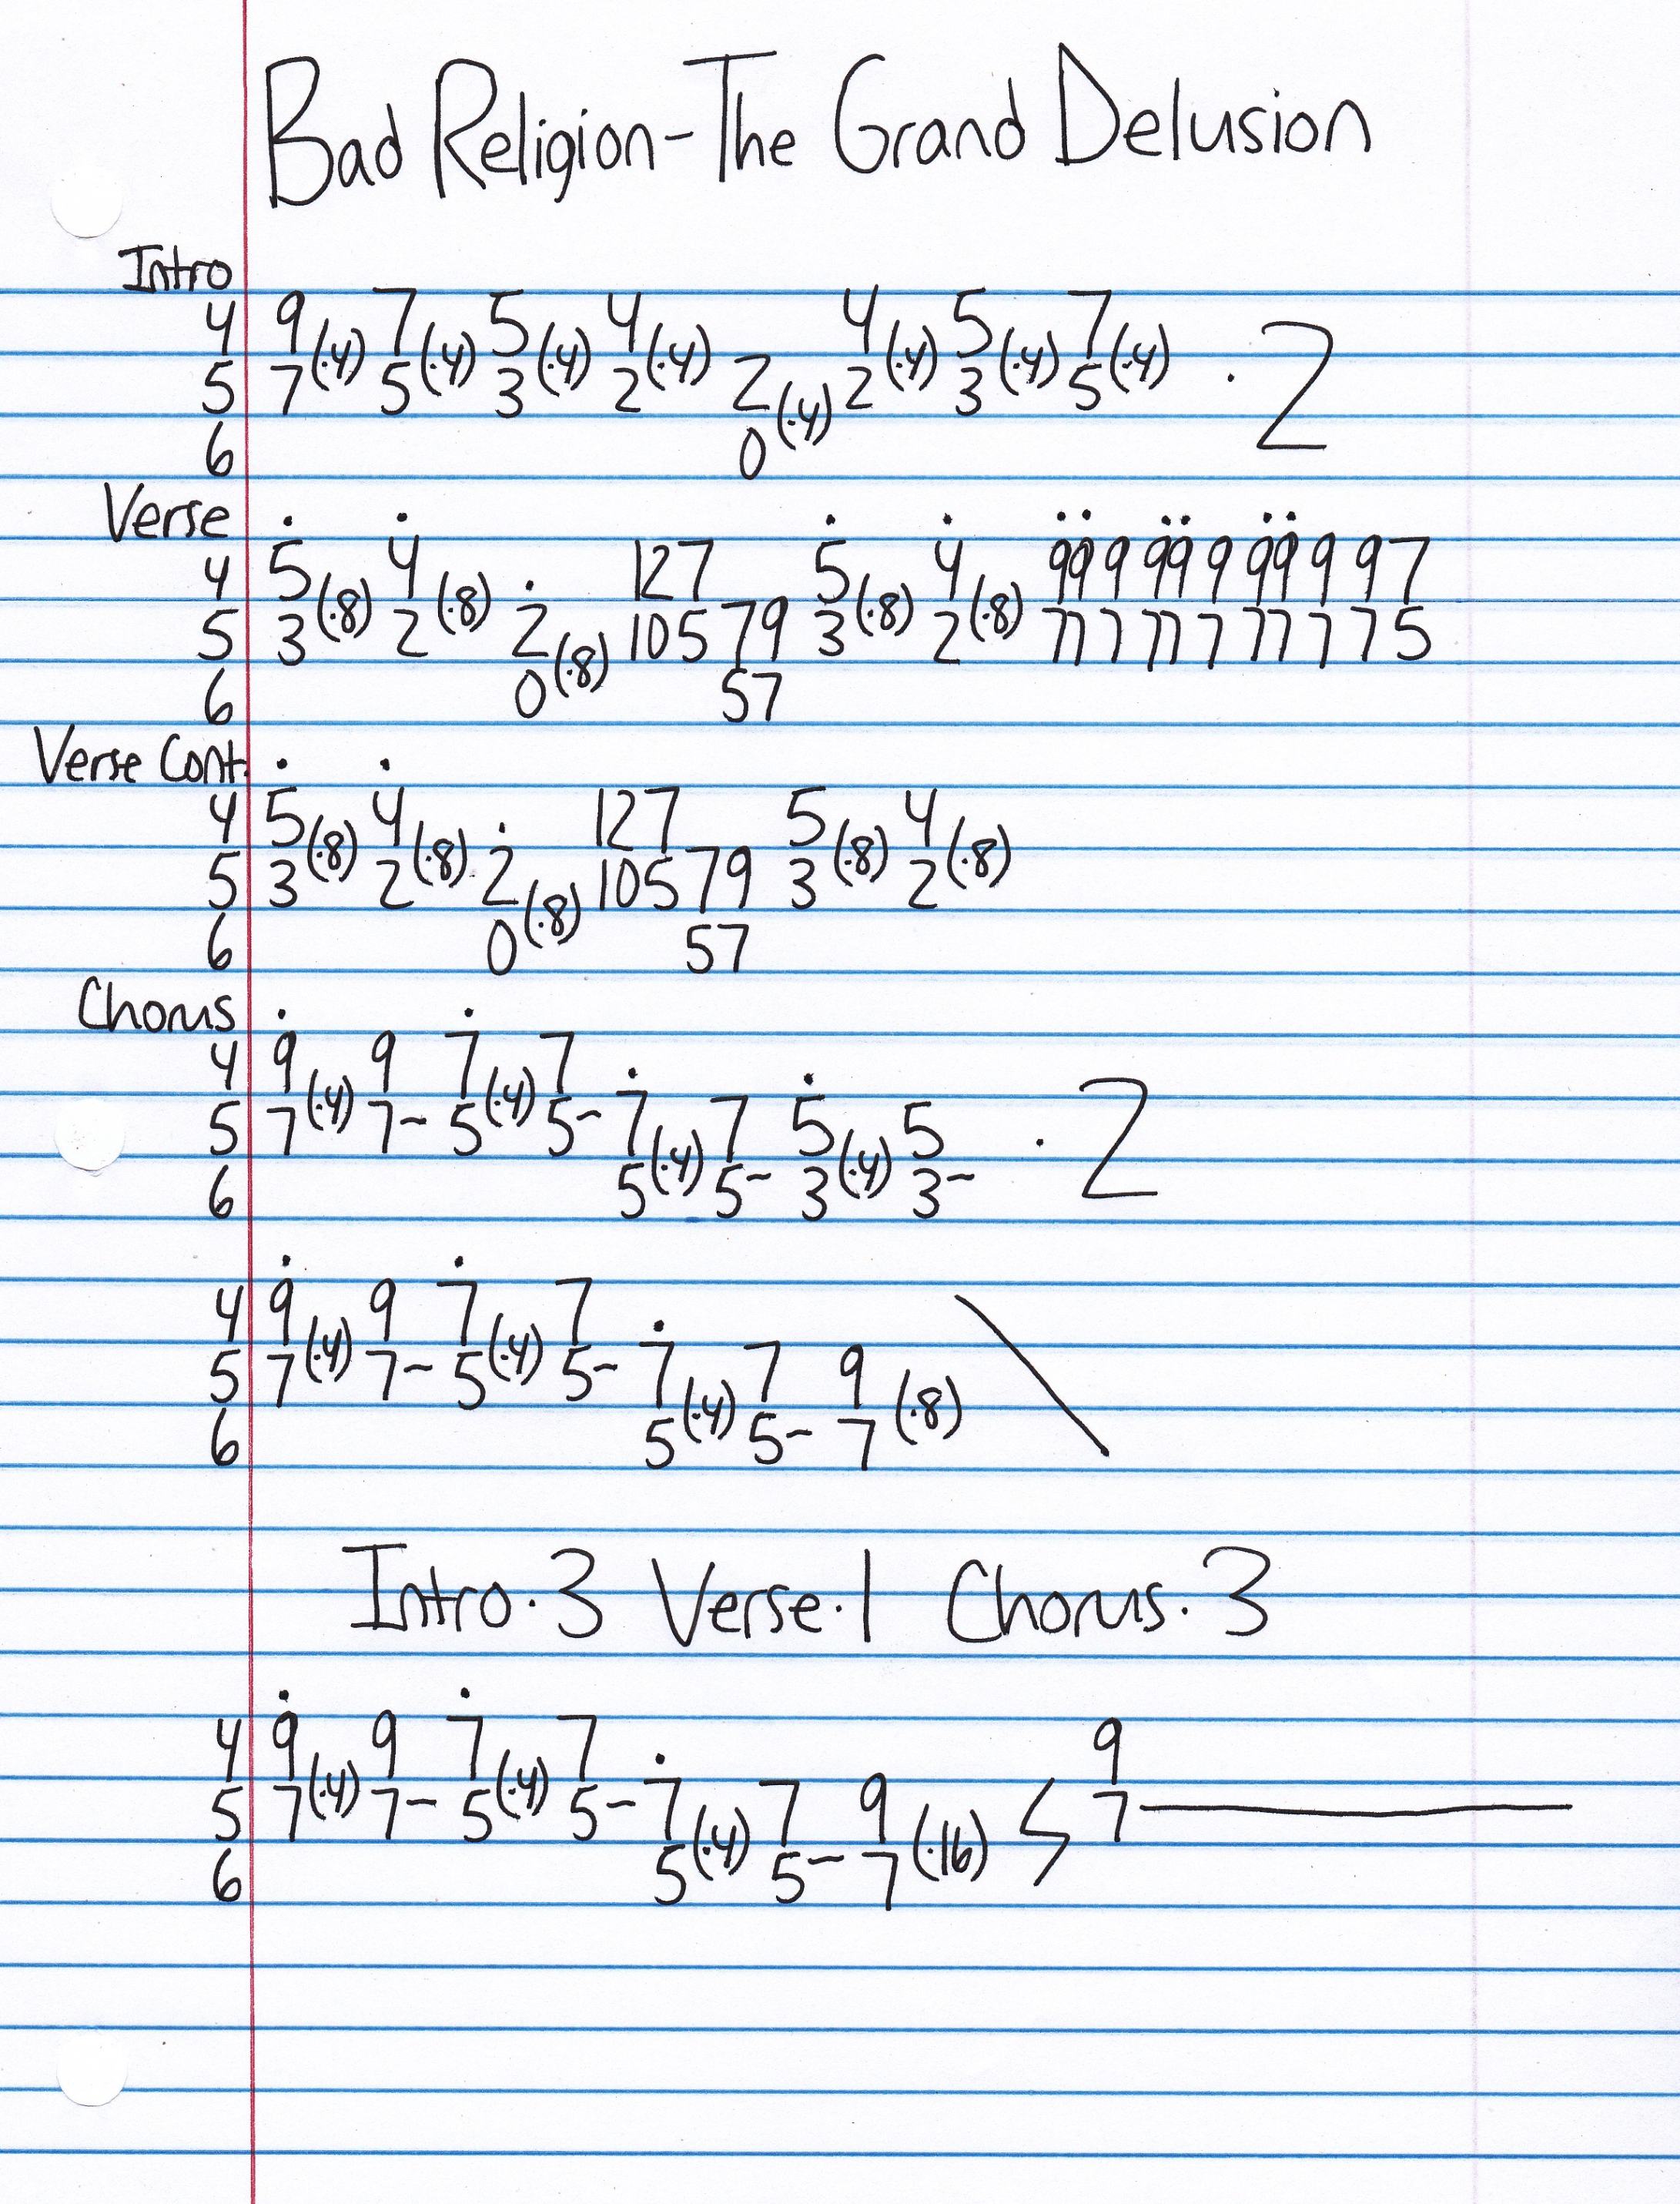 Bad Religion-The Grand Delusion
Intro
4 9 7 5 4 4 5 7
5 7(·4) 5(·4) 3(·4) 2(·4) 2 2(·4) 3(·4) 5(·4) · 2
6 0(·4)
Verse
4 5 4 12 7 5 4 99 9 99 9 99 9 9 7
5 3(·8) 2(·8) 2 10 5 7 9 3(·8) 2(·8) 77 7 77 7 77 7 7 5
6 0(·8) 5 7
Verse Cont.
4 5 4 12 7 5 4
5 3(·8) 2(·8) 2 10 5 7 9 3(·8) 2(·8)
6 0(·8) 5 7
Chorus
4 9 9 7 7
5 7(·4) 7- 5(·4) 5- 7 7 5 5 · 2
6 5(·4) 5- 3(·4) 3-
4 9 9 7 7
5 7(·4) 7- 5(·4) 5- 7 7 9
6 5(·4) 5- 7(·8)
Intro·3 Verse·1 Chorus·3
4 9 9 7 7 9
5 7(·4) 7- 5(·4) 5- 7 7 9 7
6 5(·4) 5- 7(·16)